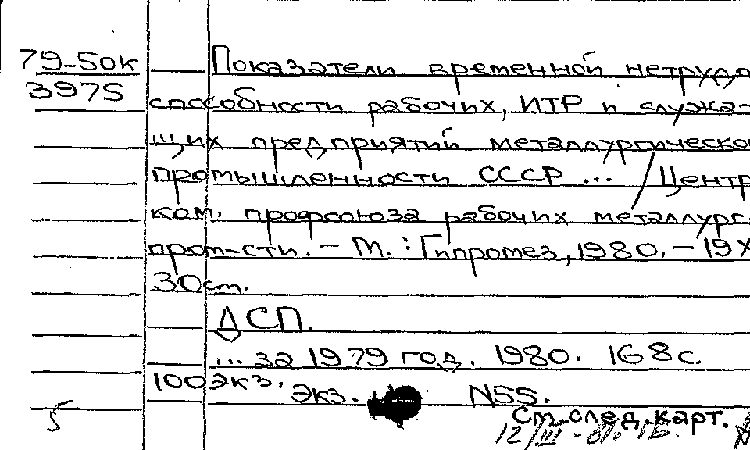 79-50к
3975
Показатели временной нетрудо
способности рабочих, ИТР и служа-
щих предприятий металлургической
промышленности СССР ... / Центр.
ком. профсоюза рабочих металлург.
пром-сти. - М. : Гипромез, 1980. - 19 х
30 см.
ДСП.
... за 1979 год. 1980. 168 с.
100 экз.
Экз. N55.
См. след. карт.
5
12/III-81.